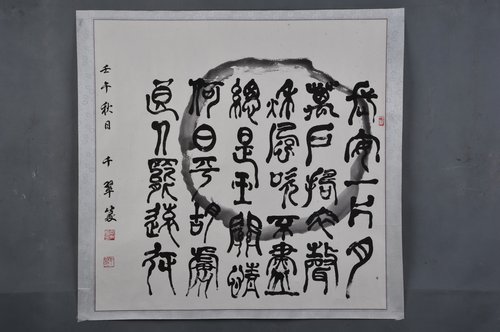 長安一片月
萬戶擣衣聲
秋風吹不盡
總是玉關情
何日平胡虜
良人罷遠征
壬午秋日 千翠篆